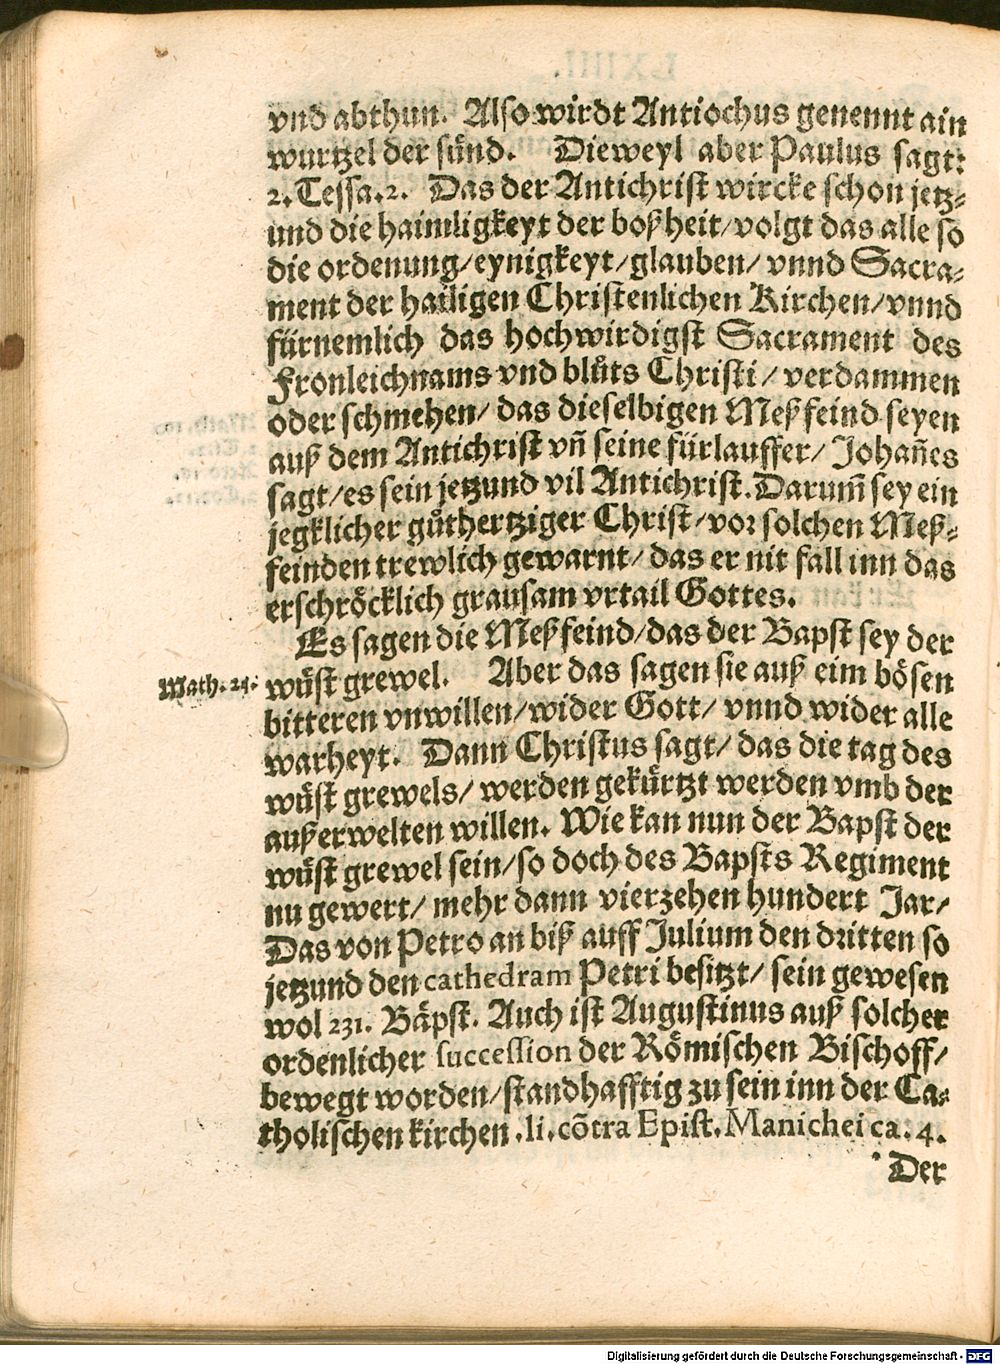 vnd abthun. Also wirdt Antiochus genennt ain
wurtzel der sünd. Dieweyl aber Paulus sagt:
2. Tessa. 2. Das der Antichrist wircke schon jetz-
und die haimligkeyt der boßheit/ volgt das alle so
die ordenung/ eynigkeyt/ glauben/ vnnd Sacra-
ment der hailigen Christenlichen Kirchen/ vnnd
fürnemlich das hochwirdigst Sacrament des
Fronleichnams vnd blůts Christi/ verdammen
oder schmehen/ das dieselbigen Meßfeind seyen
auß dem Antichrist vñ seine fürlauffer/ Johañes
sagt/ es sein jetzund vil Antichrist. Darum̃ sey ein
jegklicher gůthertziger Christ/ vor solchen Meß-
feinden trewlich gewarnt/ das er nit fall inn das
erschröcklich grausam vrtail Gottes.
Es sagen die Meßfeind/ das der Bapst sey der
Math. 24. wüst grewel. Aber das sagen sie auß eim bösen
bitteren vnwillen/ wider Gott/ vnnd wider alle
warheyt. Dann Christus sagt/ das die tag des
wüst grewels/ werden gekürtzt werden vmb der
außerwelten willen. Wie kan nun der Bapst der
wüst grewel sein/ so doch des Bapsts Regiment
nu gewert/ mehr dann vierzehen hundert Jar/
Das von Petro an biß auff Julium den dritten so
jetzund den cathedram Petri besitzt/ sein gewesen
wol 231. Bäpst. Auch ist Augustinus auß solcher
ordenlicher succession der Römischen Bischoff/
bewegt worden/ standhafftig zu sein inn der Ca-
tholischen kirchen. li. cõtra Epist. Manichei ca. 4.
Der
Digitalisierung gefördert durch die Deutsche Forschungsgemeinschaft - DFG